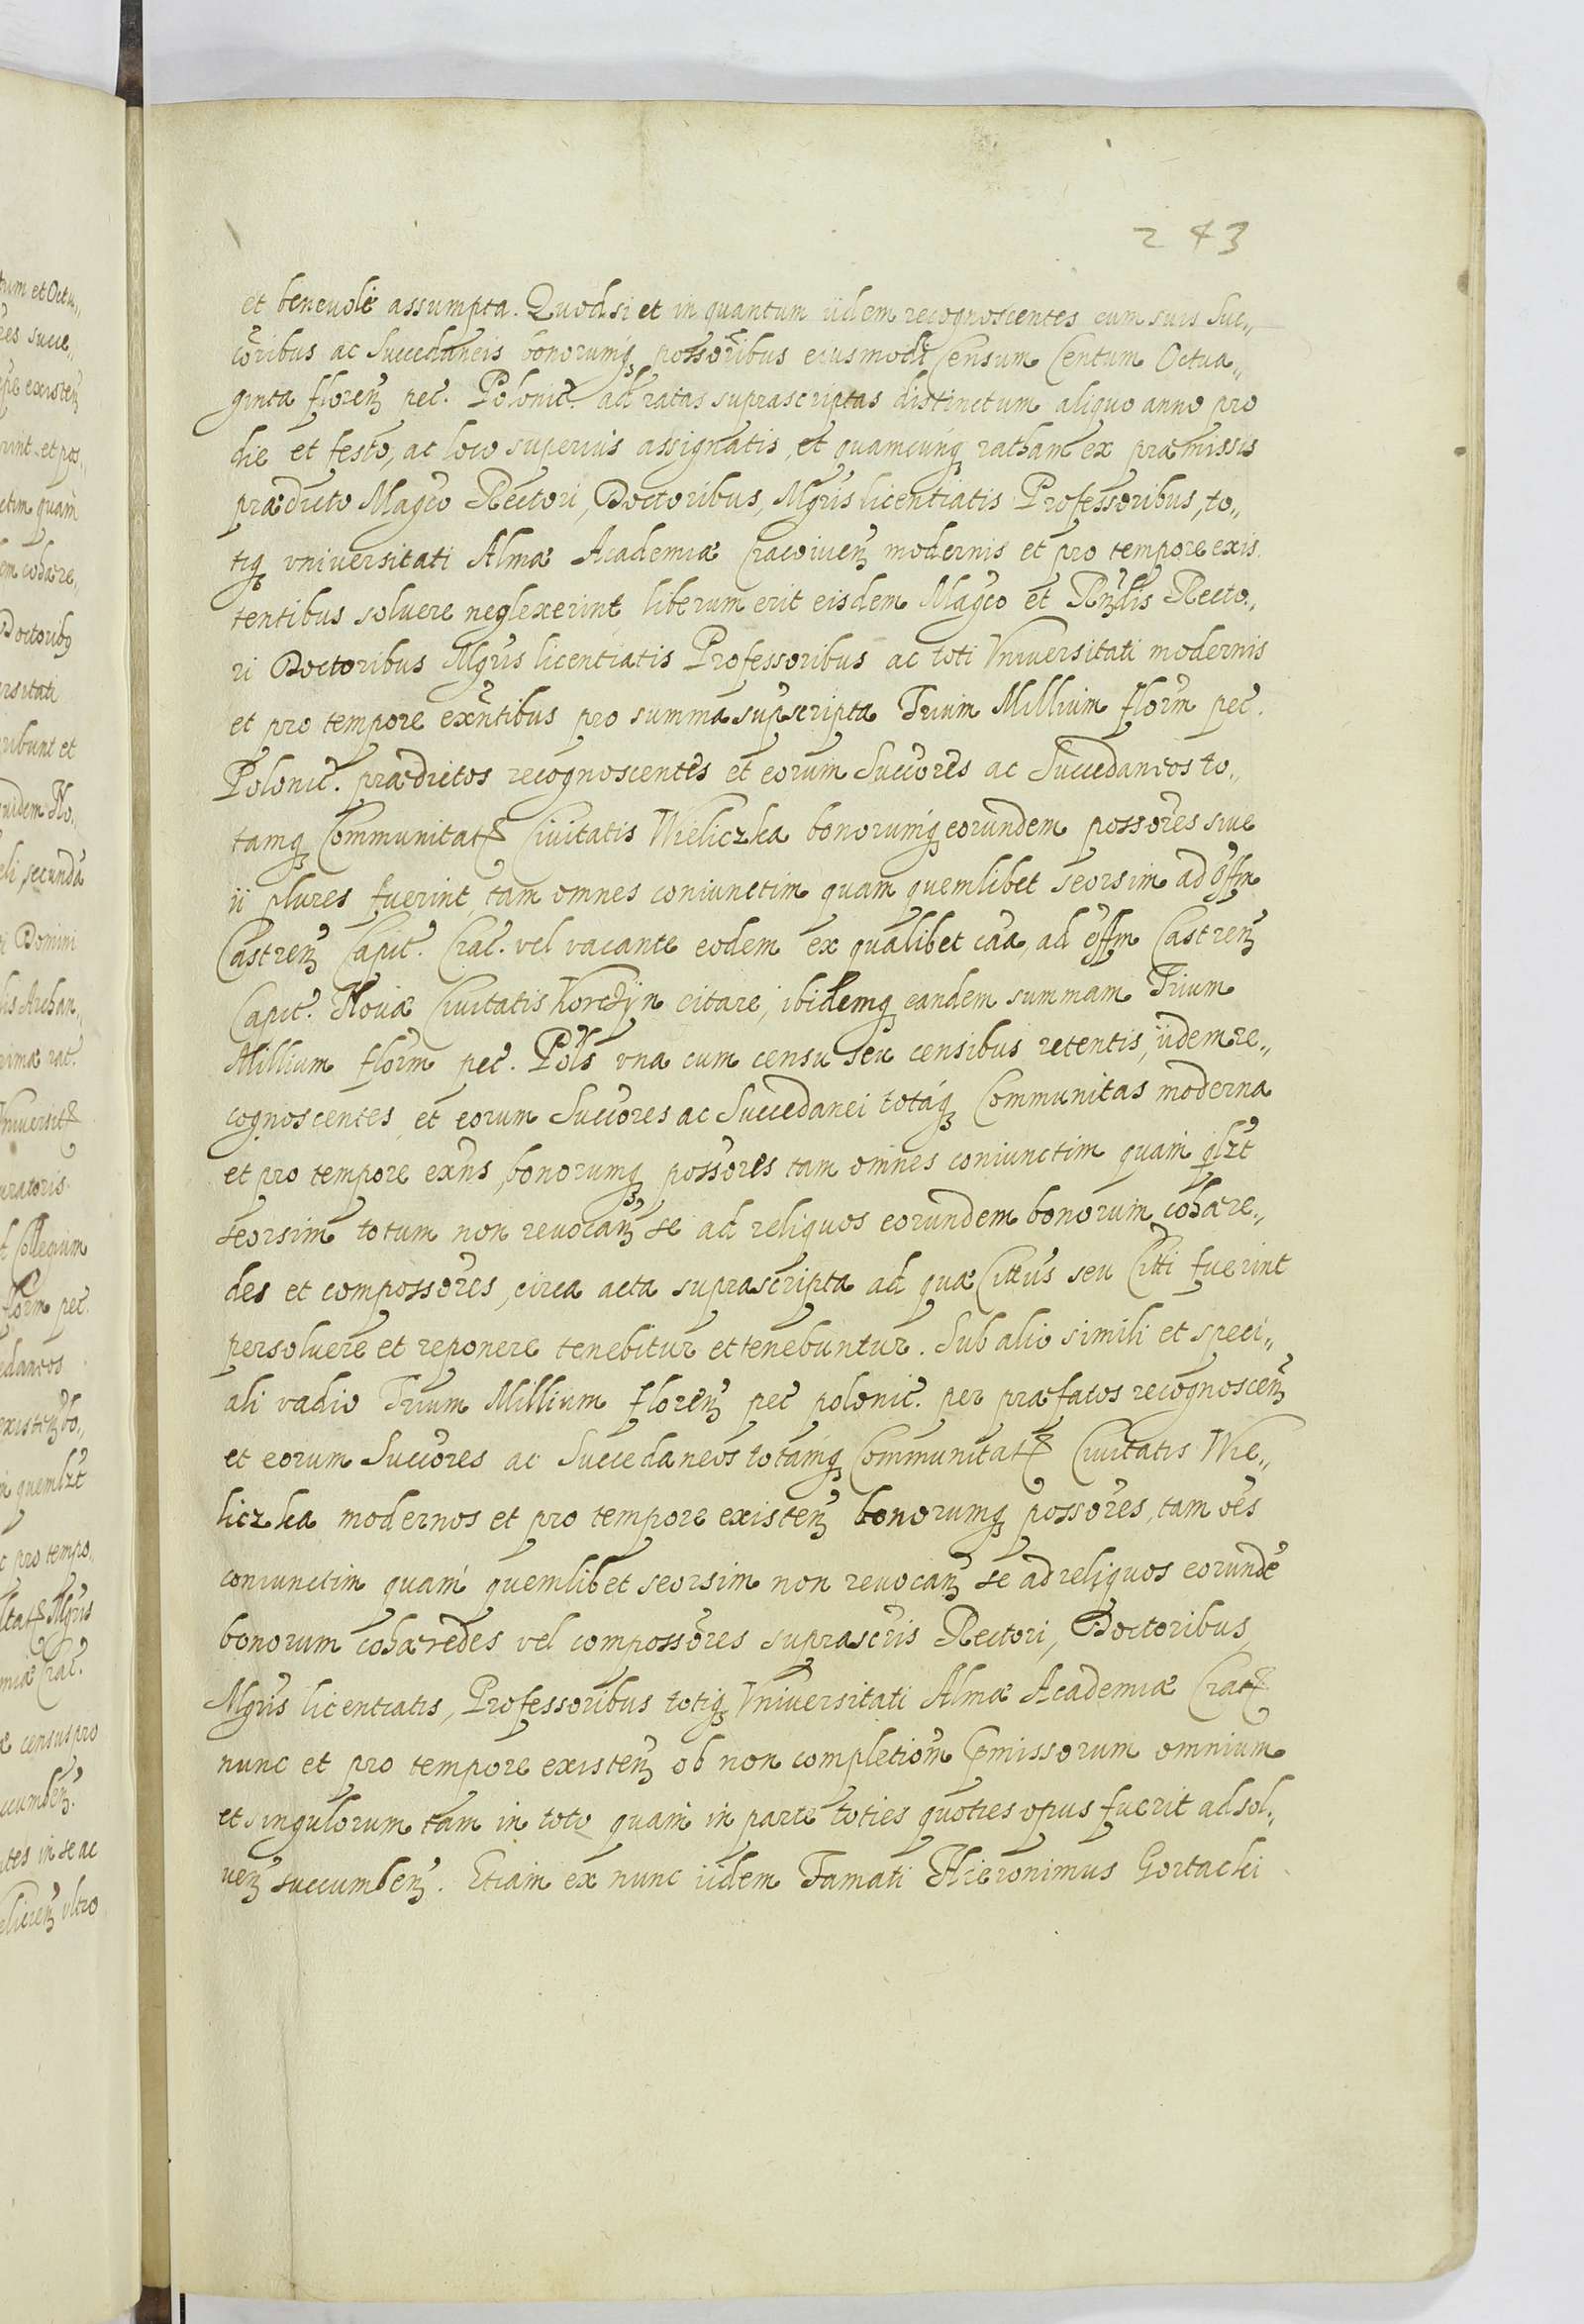 243
et benevole assumpta. Quodsi et in quantum iidem recognoscentes cum suis Suc„
coribus ac Succedaneis bonorumq possoribus eiusmodi Censum Centum Octua„
ginta floren pec. Polonic. ad ratas suprascriptas distinctum aliquo anno pro
die et festo, ac loco superius assignatis, et quamcunq ratham ex præmissis
prædicto Magco Rectori, Doctoribus, Mgris licentiatis Professoribus, to„
tiq vniversitati Almæ Academiæ Cracouien modernis et pro tempore exis
tentibus soluere neglexerint liberum erit eisdem Magco et Rndis Recto„
ri Doctoribus Mgris licentiatis Professoribus ac toti Vniversitati modernis
et pro tempore exntibus pro summa supscripta Trium Millium florm pec.
Polonic. prædictos recognoscentes et eorum Succores ac Succedaneos to„
tamq Communitat Ciuitatis Wieliczka bonorumq eorundem possores siue
ii plures fuerint, tam omnes coniunctim quam quemlibet seorsim ad offm
Castren Capit. Crac. vel vacante eodem ex qualibet caa, ad offm Castren
Capit. Nouæ Ciuitatis Korczÿn citare, ibidemq eandem summam Trium
Millium florm pec. Pols vna cum censu seu censibus retentis, iidem re„
cognoscentes et eorum Succores ac Succedanei totaq Communitas moderna
et pro tempore exns, bonorumq possores tam omnes coniunctim quam qlzt
seorsim totum non reuocan se ad reliquos eorundem bonorum cohære„
des et compossores, circa acta suprascripta ad quæ Cittus seu Citti fuerint
persoluere et reponere tenebitur et tenebuntur. Sub alio simili et speci„
ali vadio Trium Millium floren pec polonic. per præfatos recognoscen
et eorum Succores ac Succedaneos totamq Communitat Ciuitatis Wie„
liczka modernos et pro tempore existen bonorumq possores, tam oes
coniunctim quam quemlibet seorsim non reuocan se ad reliquos eorunde
bonorum cohæredes vel compossores suprascris Rectori, Doctoribus,
Mgris licentiatis, Professoribus totiq Vniversitati Almæ Academiæ Crac
nunc et pro tempore existen ob non completiom pmissorum omnium
et singulorum tam in toto quam in parte toties quoties opus fuerit ad sol„
uen succumben. Etiam ex nunc iidem Famati Hieronimus Gortacki